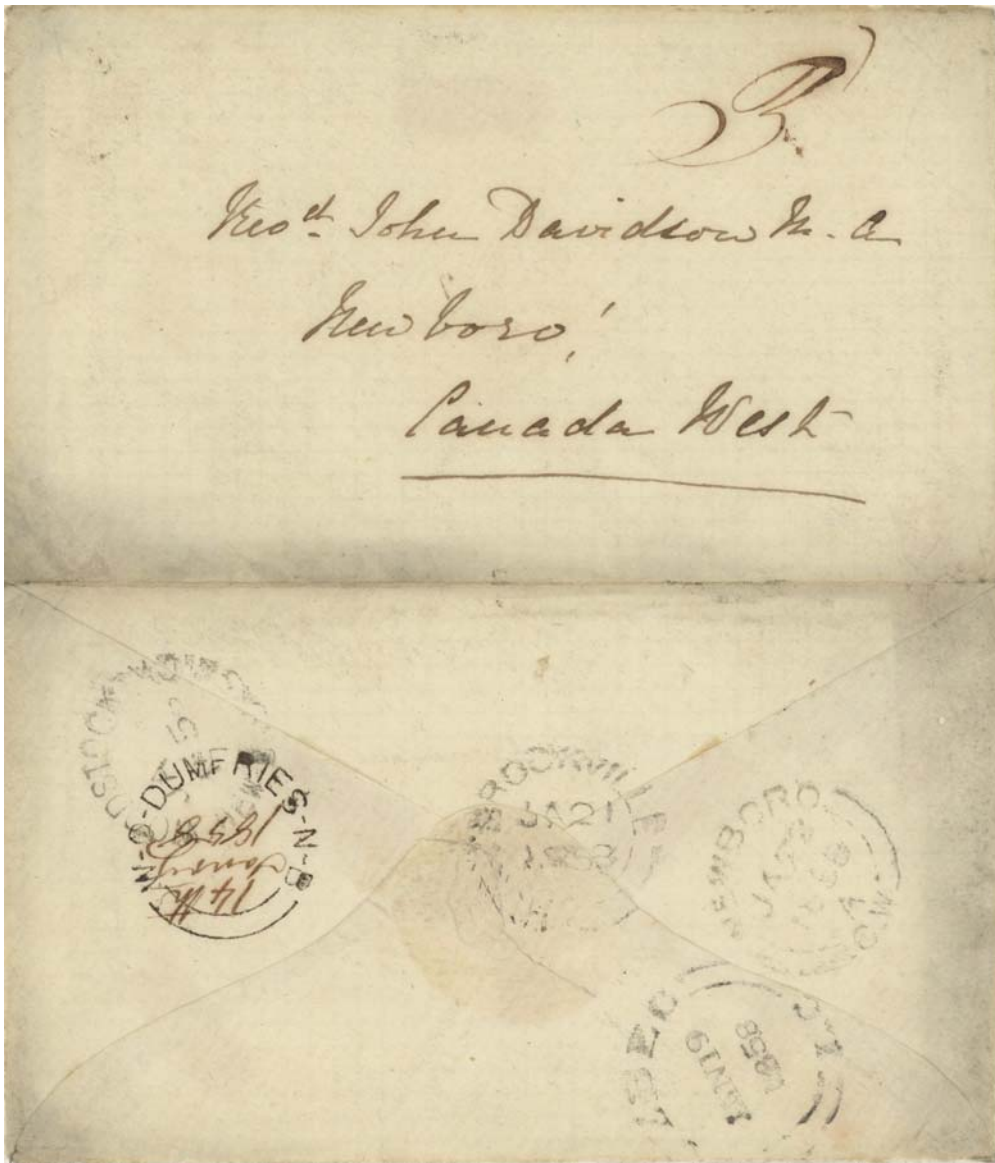 3
John Davidson M. A
Newboro'
Canada West
WOODSTOCK
15
DUMFRIES-N-B
14th
Jany
1858
BROCKVILLE
JA 21
1858
NEWBORO
C.W
JA
1858
JAN 19
1858
L.C